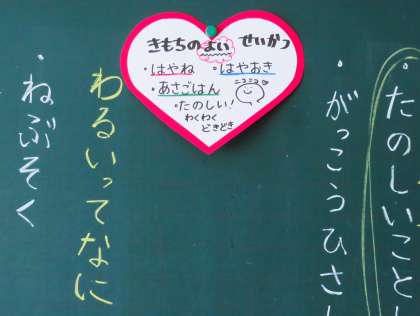 ・たのしいこと
・がっこうひさし
きもちのよい せいかつ
・はやね ・はやおき
・あさごはん
ニコニコ
・たのしい!
わくわく
どきどき
わるいってなに
・ねぶそく